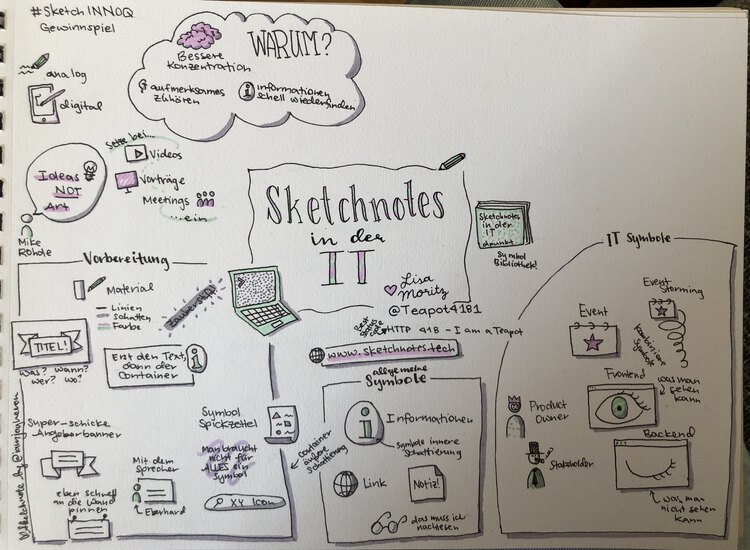 #SketchINNOQ
Gewinnspiel
WARUM?
Bessere
Konzentration
aufmerksames
zuhören
Informationen
schell wiederfinden
analog
digital
Setze bei...
Videos
Vorträge
Meetings
...ein
Ideas
NOT
Art
Mike
Rohde
Sketchnotes
in der
IT
Lisa
Moritz
@Teapot4181
HTTP 418 - I am a Teapot
www.sketchnotes.tech
Sketchnotes
in der
IT
dpunkt
Symbol
Bibliothek!
Vorbereitung
Material
Linien
Schatten
Farbe
TITEL!
was? wann?
wer? wo?
Erst den Text,
dann der
Container
Super-schicke
Angeberbanner
eben schnell
an die Wand
pinnen
Mit dem
Sprecher
Eberhard
Symbol
Spickzettel
Man braucht
nicht für
ALLES ein
Symbol
XY Icon
Container
äußere
Schattierung
allgemeine
Symbole
Informationen
Symbole innere
Schattierung
Link
Notiz!
das muss ich
nachlesen
IT Symbole
Event
Event
Storming
kombiniere
Symbole
Frontend
was man
sehen
kann
Product
Owner
Backend
Stakeholder
was man
nicht sehen
kann
Sketchnote by